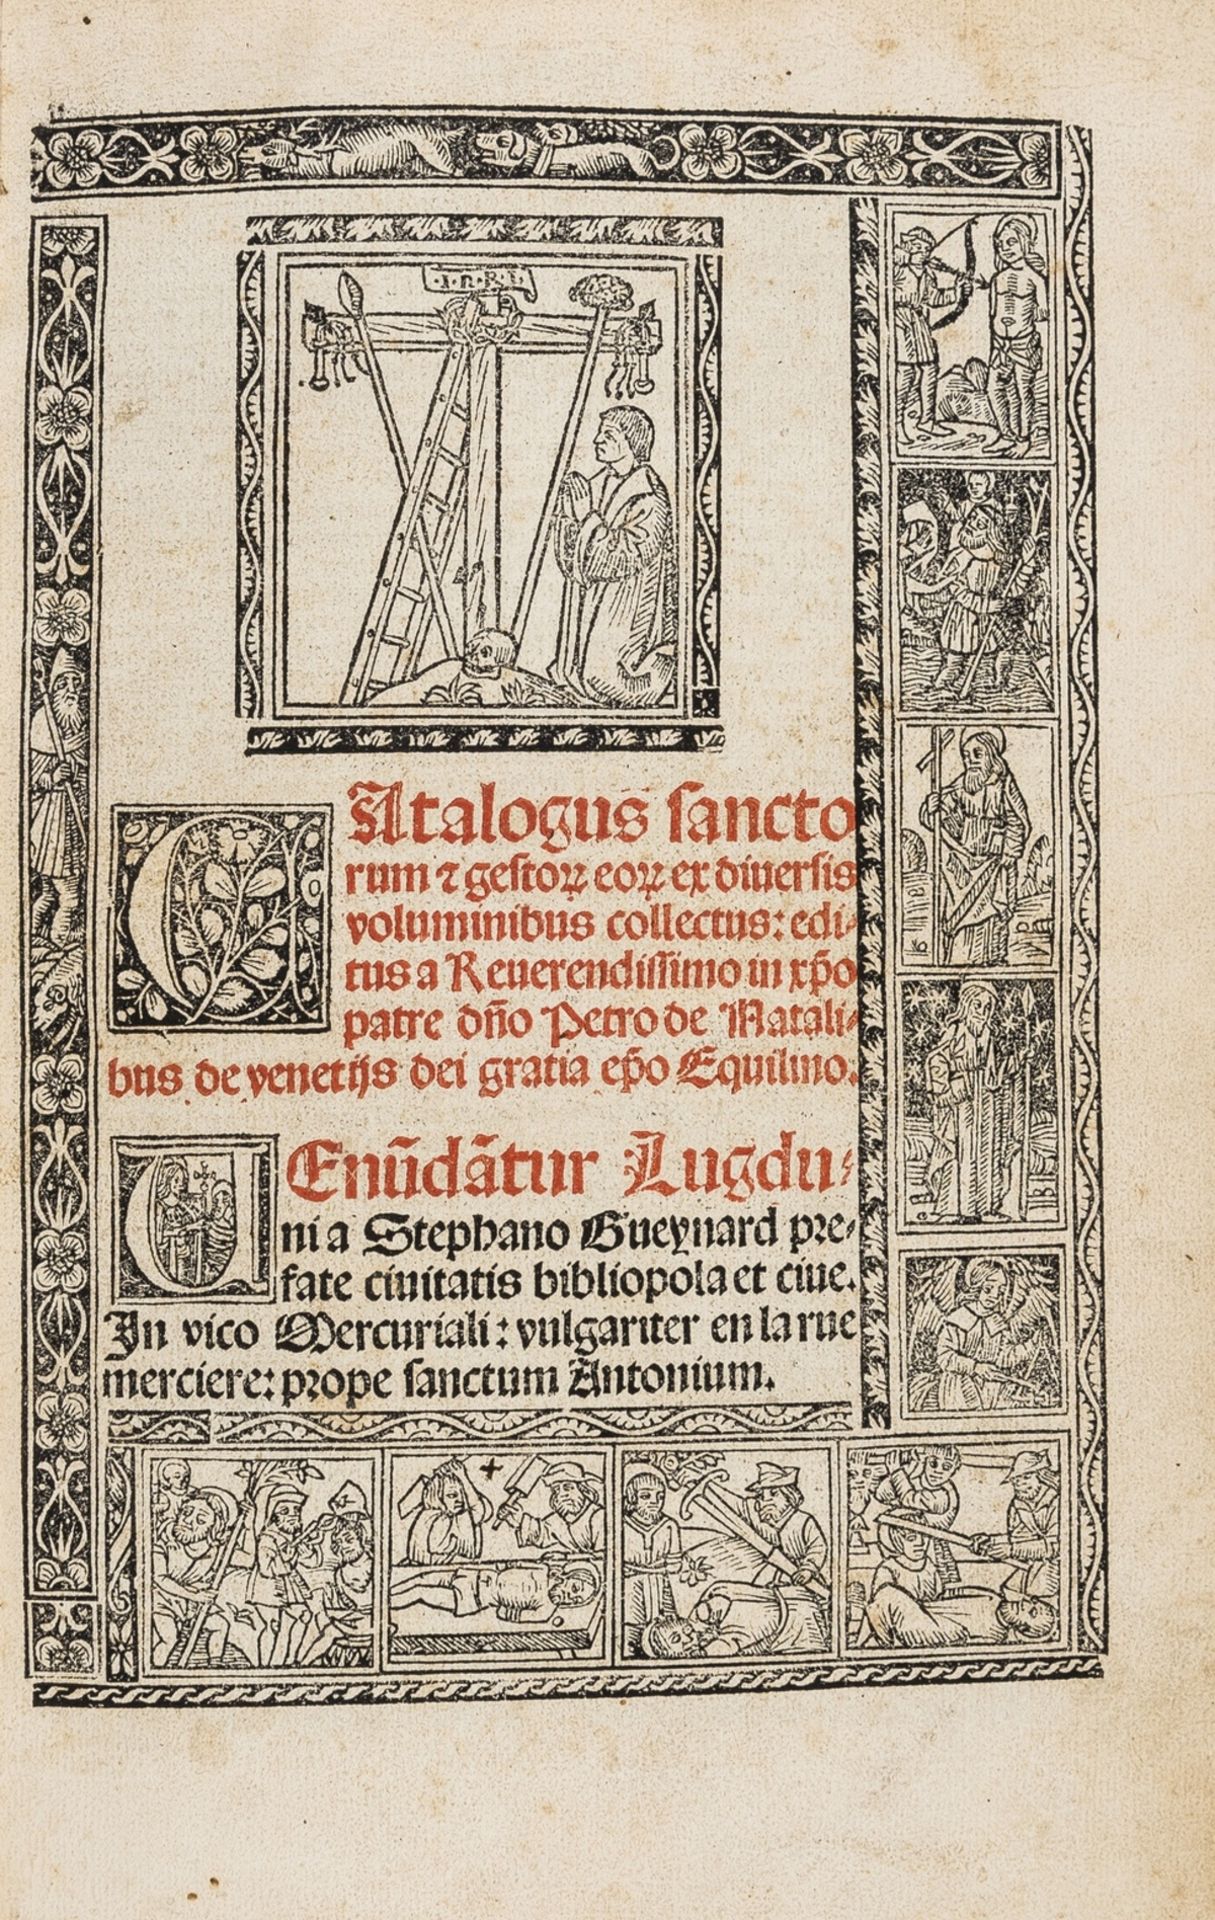 I.N.R.I
CAtalogus sancto
rum ⁊ gestoꝝ eoꝝ ex diuersis
voluminibus collectus: edi⸗
tus a Reuerendissimo in xp̄o
patre dn̄o Petro de Natali⸗
bus de venetijs dei gratia ep̄o Equilino.
UEnūdātur Lugdu⸗
ni a Stephano Gueynard pre⸗
fate ciuitatis bibliopola et ciue.
In vico Mercuriali: vulgariter en la rue
merciere: prope sanctum Antonium.